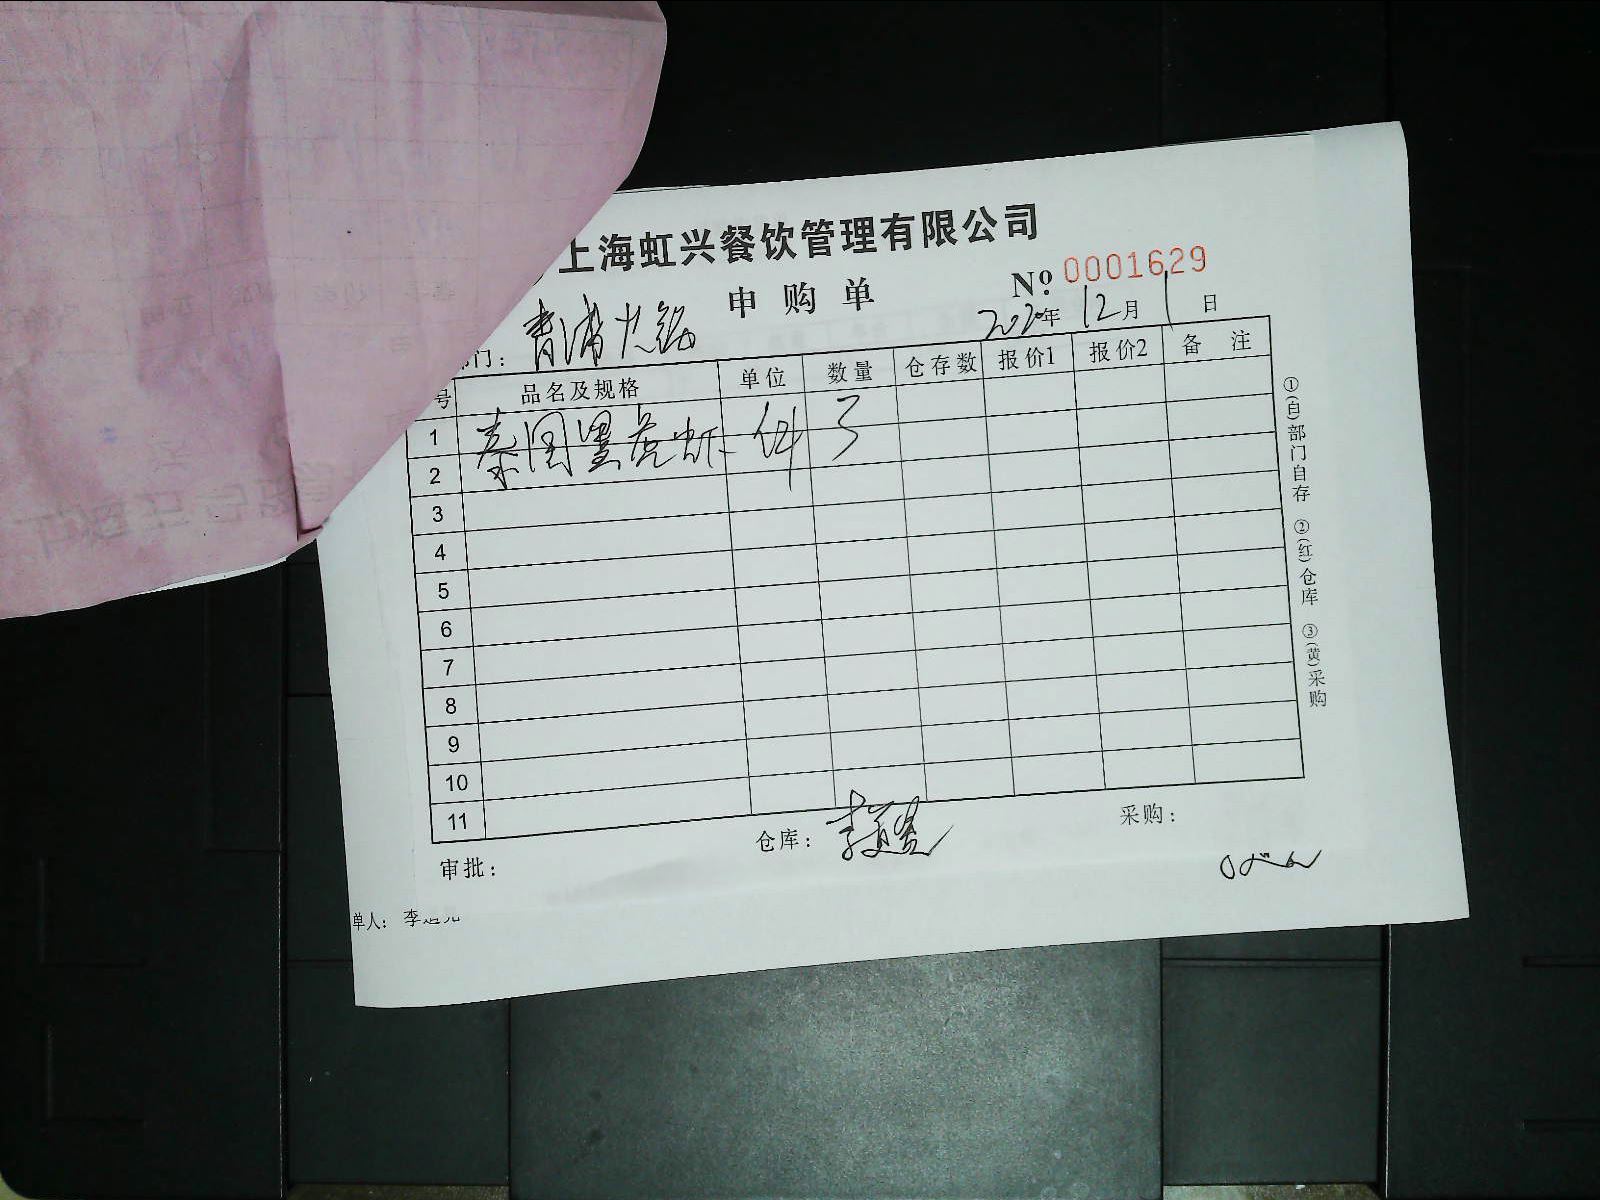 上海虹兴餐饮管理有限公司
申购单
No. 0001629
部门: 青浦火锅
2020年 12月 1日
号 品名及规格 单位 数量 仓存数 报价1 报价2 备注
1 泰国黑虎虾 件 3
2
3
4
5
6
7
8
9
10
11
①(白)部门自存 ②(红)仓库 ③(黄)采购
审批: 仓库: 采购:
单人: 李